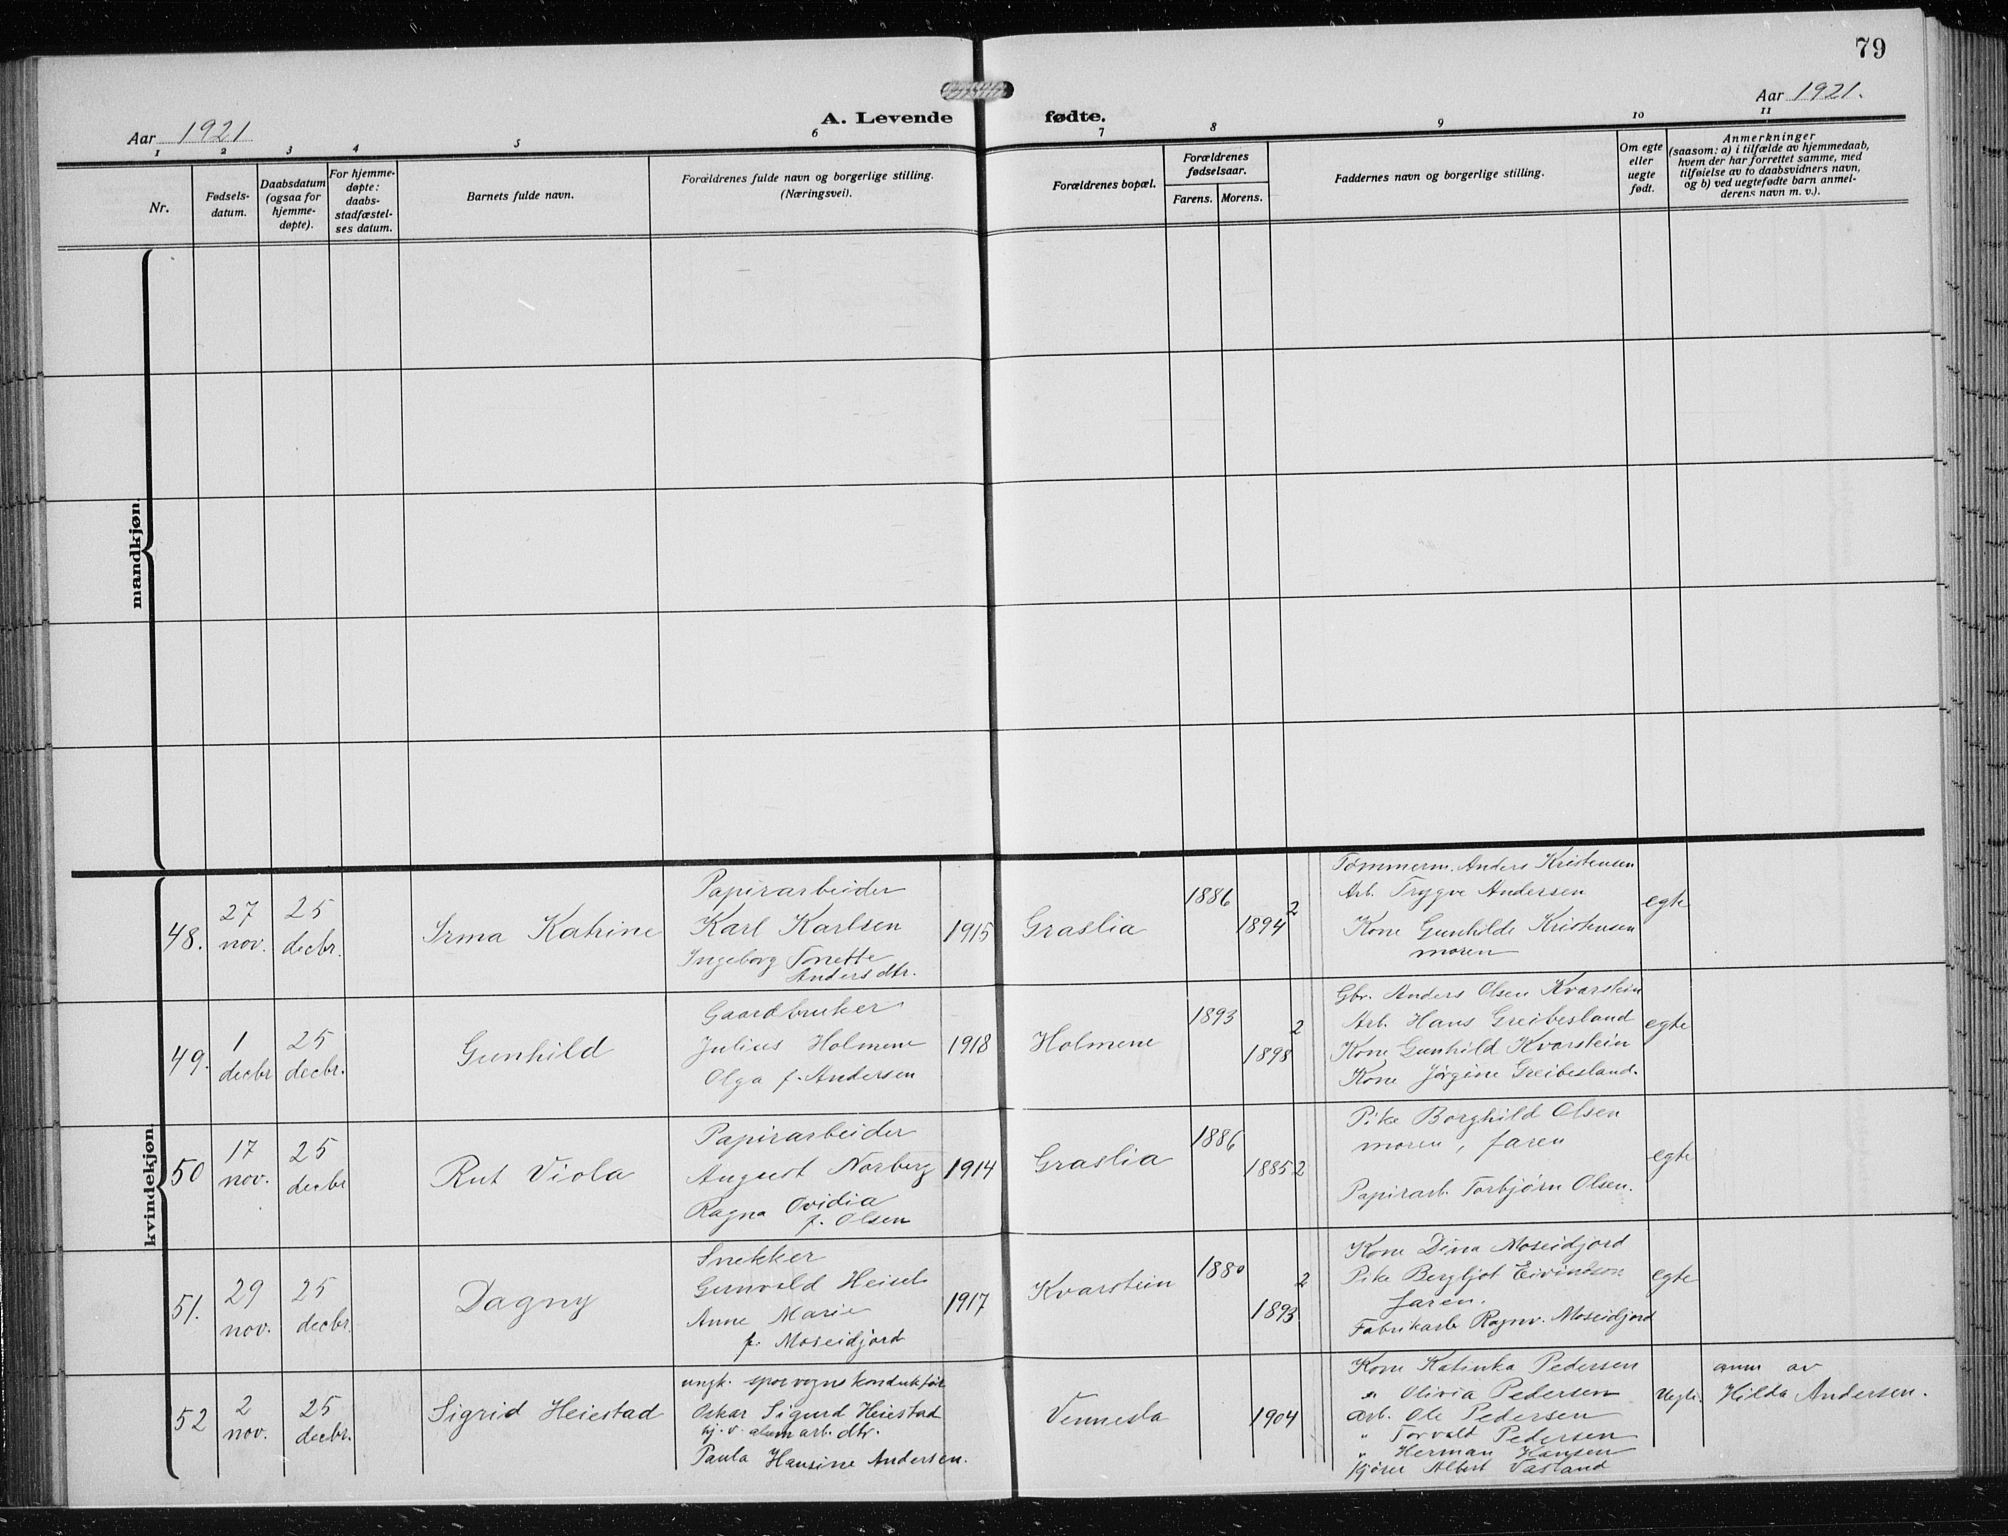 79
Aar 1921
A. Levende fødte.
Aar 1921.
1 2 3 4 5 6 7 8 9 10 11
Nr.
Fødsels-
datum.
Daabsdatum
(ogsaa for
hjemme-
døpte).
For hjemme-
døpte:
daabs-
stadfæstel-
ses datum.
Barnets fulde navn.
Forældrenes fulde navn og borgerlige stilling.
(Næringsvei).
Forældrenes bopæl.
Forældrenes
fødselsaar.
Farens. Morens.
Faddernes navn og borgerlige stilling.
Om egte
eller
uegte
født.
Anmerkninger
(saasom: a) i tilfælde av hjemmedaab,
hvem der har forrettet samme, med
tilføielse av to daabsvidners navn,
og b) ved uegtefødte barn anmel-
derens navn m. v.).
mandkjøn.
kvindekjøn.
48.
27
nov.
25
decbr.
Irma Katrine
Papirarbeider
Karl Karlsen
Ingeborg Tonette
Andersdtr.
1915
Graslia
1886
1894
2
Tømmerm. Anders Kristensen
Arb. Trygve Andersen
Kone Gunhilde Kristensen
moren
egte
49.
1
decbr
25
decbr.
Gunhild
Gaardbruker
Julius Holmene
Olga f. Andersen
1918
Holmene
1893
1898
2
Gbr. Anders Olsen Kvarstein
Arb. Hans Greibesland
Kone Gunhild Kvarstein
Kone Jørgine Greibesland.
egte
50
17
nov.
25
decbr
Rut Viola
Papirarbeider
August Norberg
Ragna Ovidia
f. Olsen
1914
Graslia
1886
1885
2
Pike Borghild Olsen
moren, faren
Papirarb. Torbjørn Olsen.
egte
51.
29
nov.
25
decbr.
Dagny
Snekker
Gunvald Heisel
Anne Marie
f. Moseidjord
1917
Kvarstein
1880
1893
2
Kone Dina Moseidjord
Pike Bergljot Eivindson
faren.
Fabrikarb Ragnv. Moseidjord
egte
52
2
nov.
25
decbr.
Sigrid Heiestad
ungk. sporvognskonduktør
Oskar Sigurd Heiestad
arb. dtr.
Paula Hansine Andersen.
Vennesla
1904
Kone Katinka Pedersen
" Olivia Pedersen
Arb. Ole Pedersen
" Torvald Pedersen
" Herman Hansen
Kjører Albert Vasland
Uegte.
anm av
Hilda Andersen.